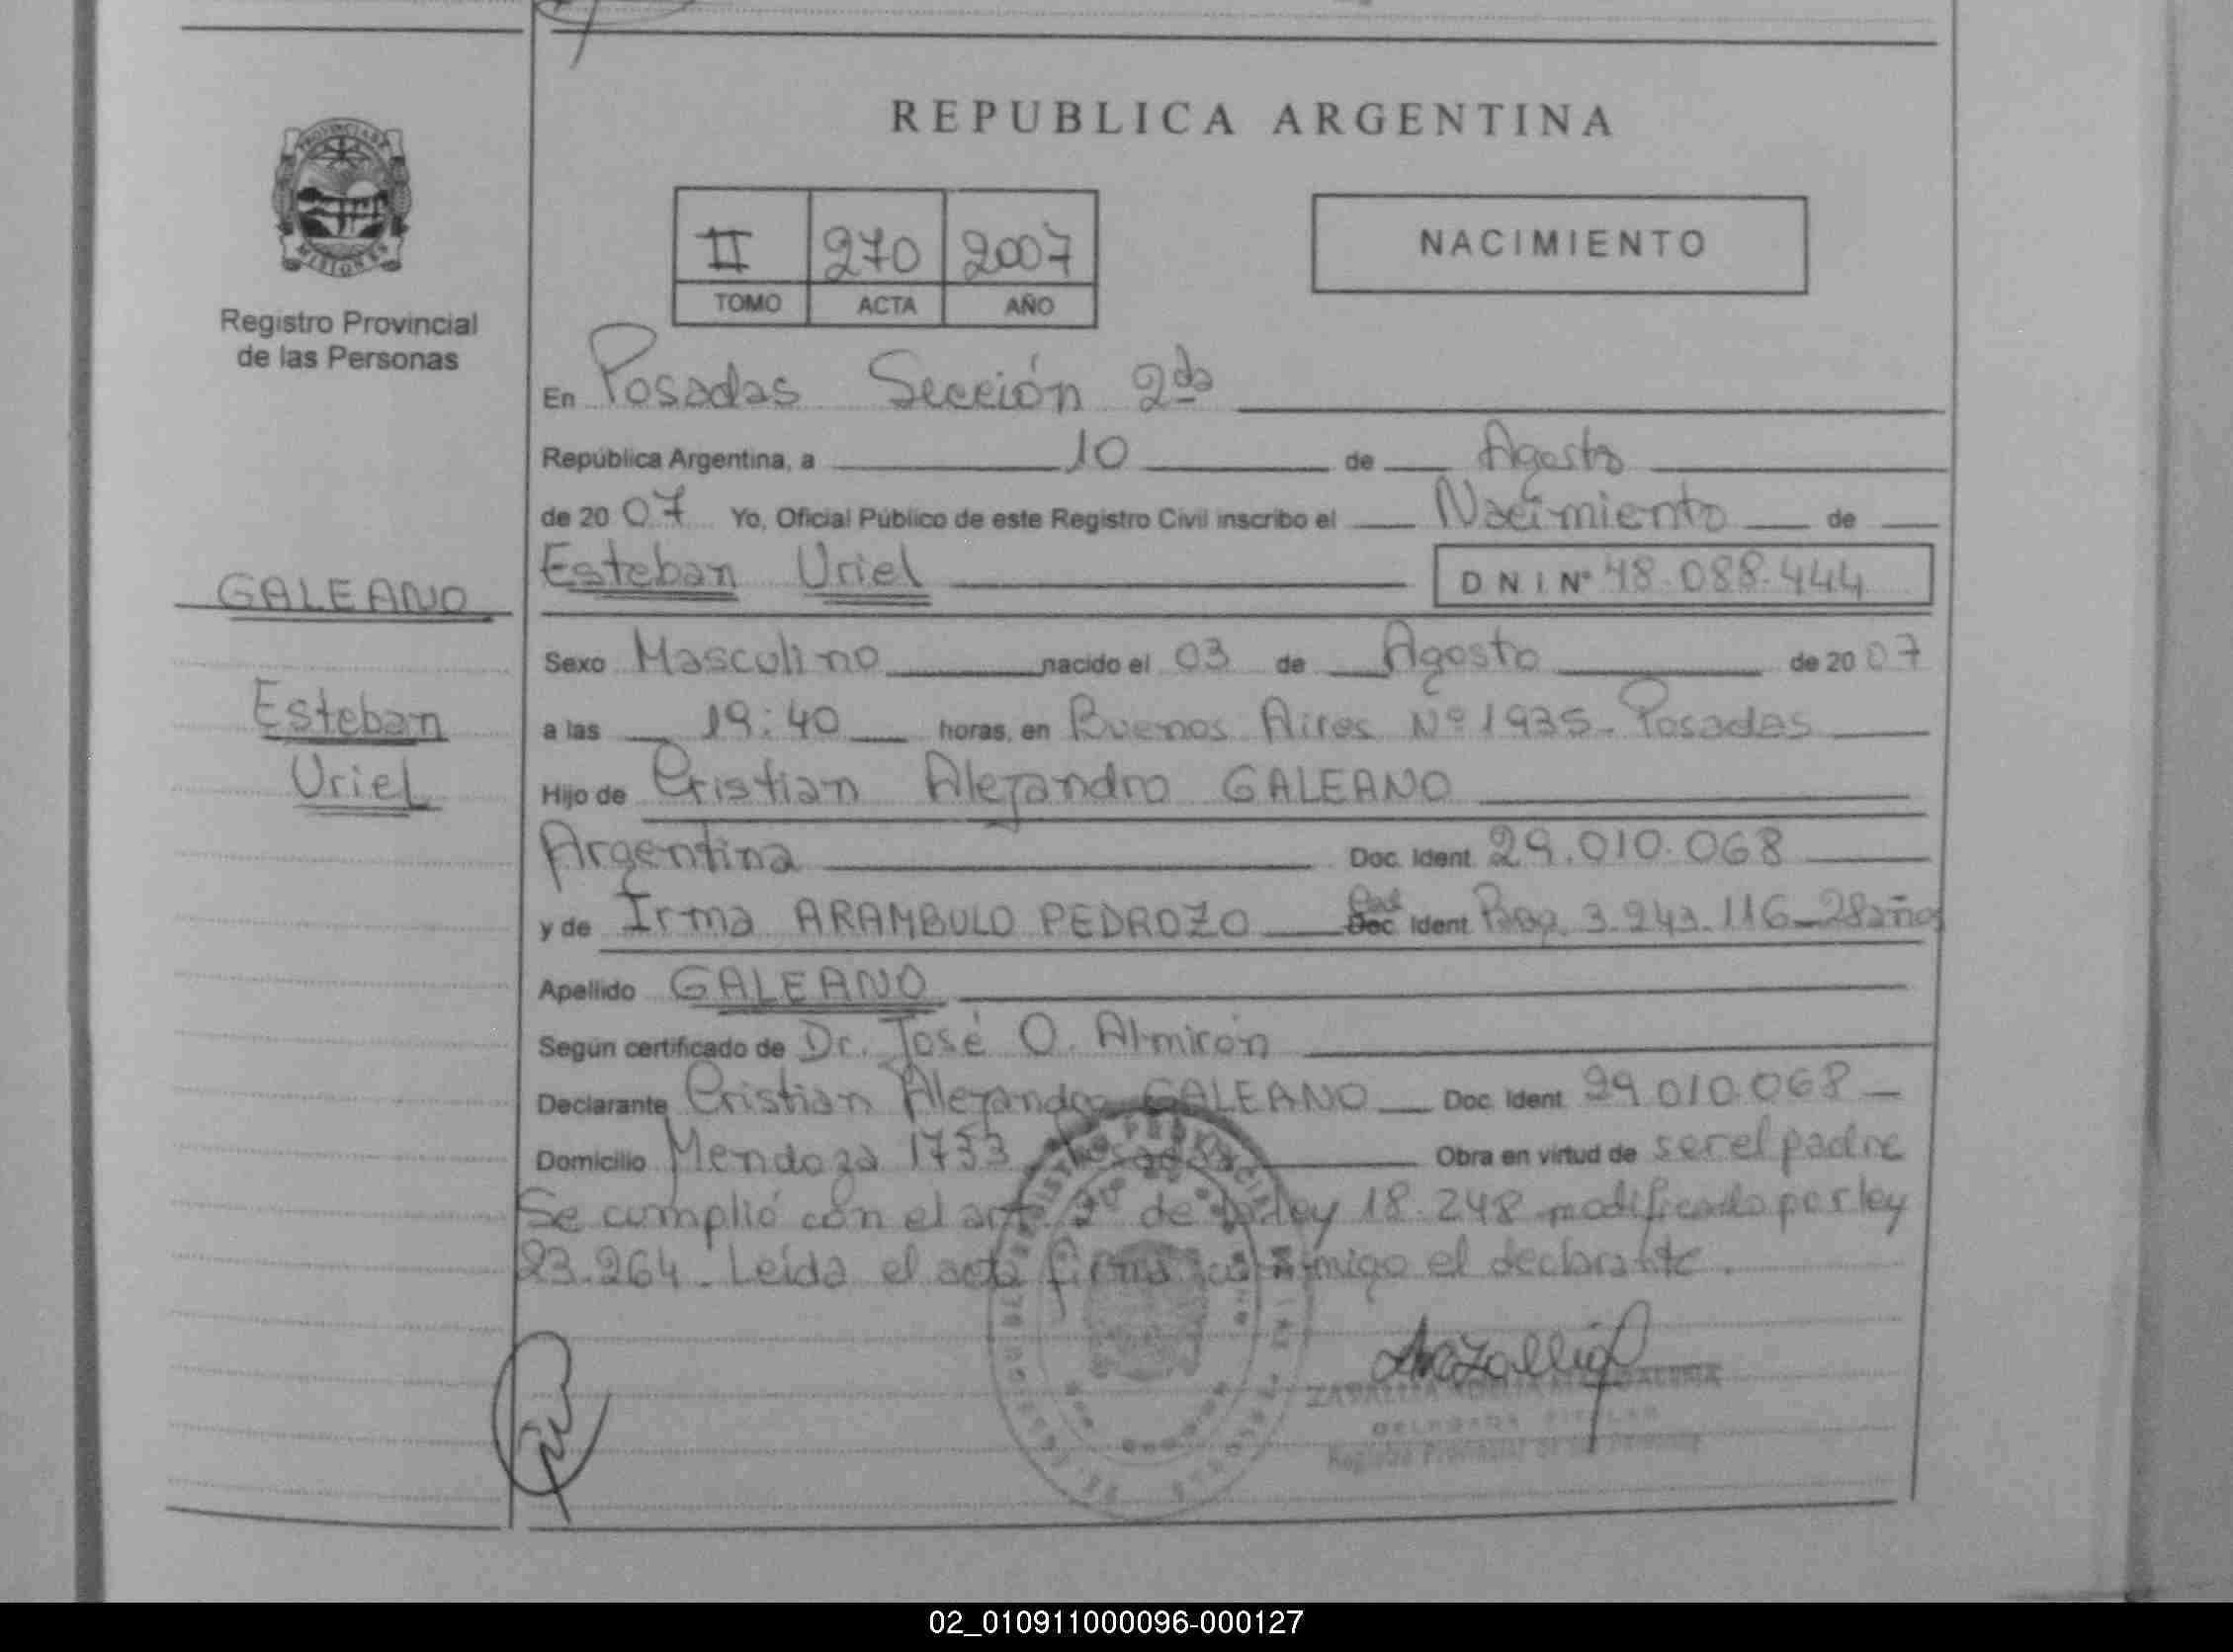 REPUBLICA ARGENTINA
PROVINCIA DE
MISIONES
Registro Provincial
de las Personas
II 270 2007
TOMO ACTA AÑO
NACIMIENTO
En Posadas Sección 2da
República Argentina, a 10 de Agosto
de 20 07 Yo, Oficial Público de este Registro Civil inscribo el Nacimiento de
GALEANO
Esteban Uriel
Esteban Uriel D N I. Nº 48.088.444
Sexo Masculino nacido el 03 de Agosto de 20 07
a las 19:40 horas, en Buenos Aires Nº 1935. Posadas
Hijo de Cristian Alejandro GALEANO
Argentina Doc. Ident. 29.010.068
y de Irma ARAMBULO PEDROZO Doc Ident 3.943.116-28años
Apellido GALEANO
Según certificado de Dr. José O. Almirón
Declarante Cristian Alejandro GALEANO Doc. Ident. 29.010.068
Domicilio Mendoza 1753 Posadas Obra en virtud de ser el padre
Se cumplió con el art. 2º de la ley 18.248 modificado por ley
23.264. Leída el acta firma conmigo el declarante.
DELEGADA TITULAR
Registro Provincial de las Personas
02_010911000096-000127